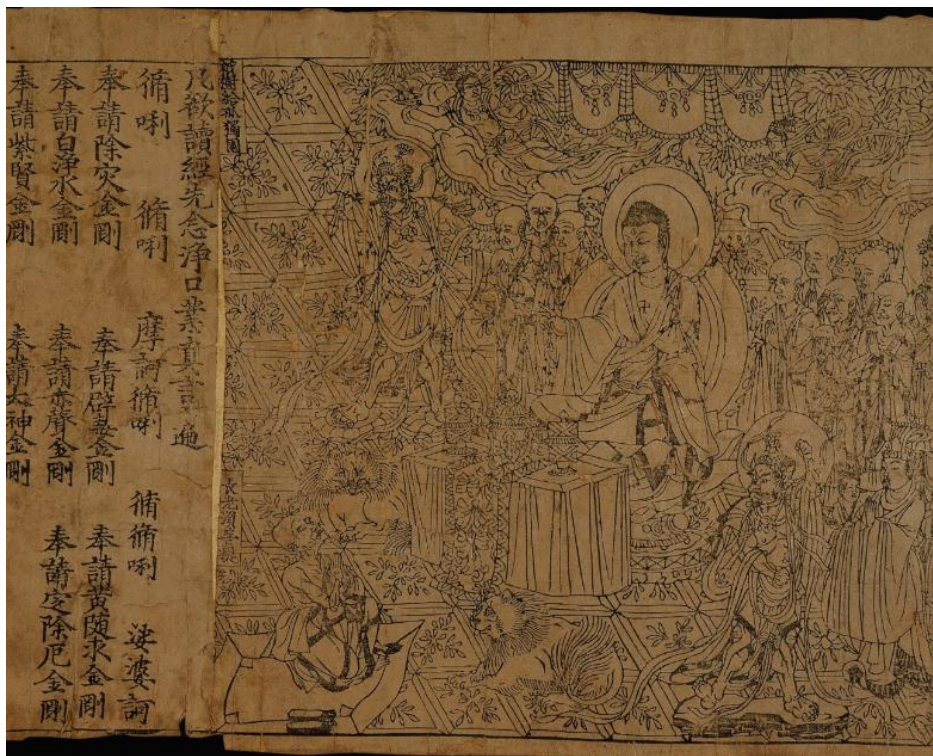 祇樹給孤獨園
長老須菩提
凡欲讀經先念淨口業真言 遍
脩唎 脩唎 摩訶脩唎 脩脩唎 娑婆訶
奉請除灾金剛 奉請辟毒金剛 奉請黃随求金剛
奉請白淨水金剛 奉請赤聲金剛 奉請定除厄金剛
奉請紫賢金剛 奉請大神金剛